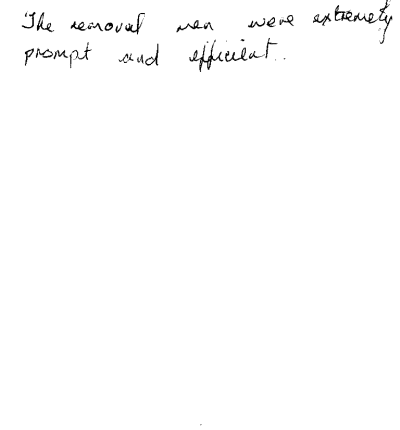 The removal men were extremely
prompt and efficient.